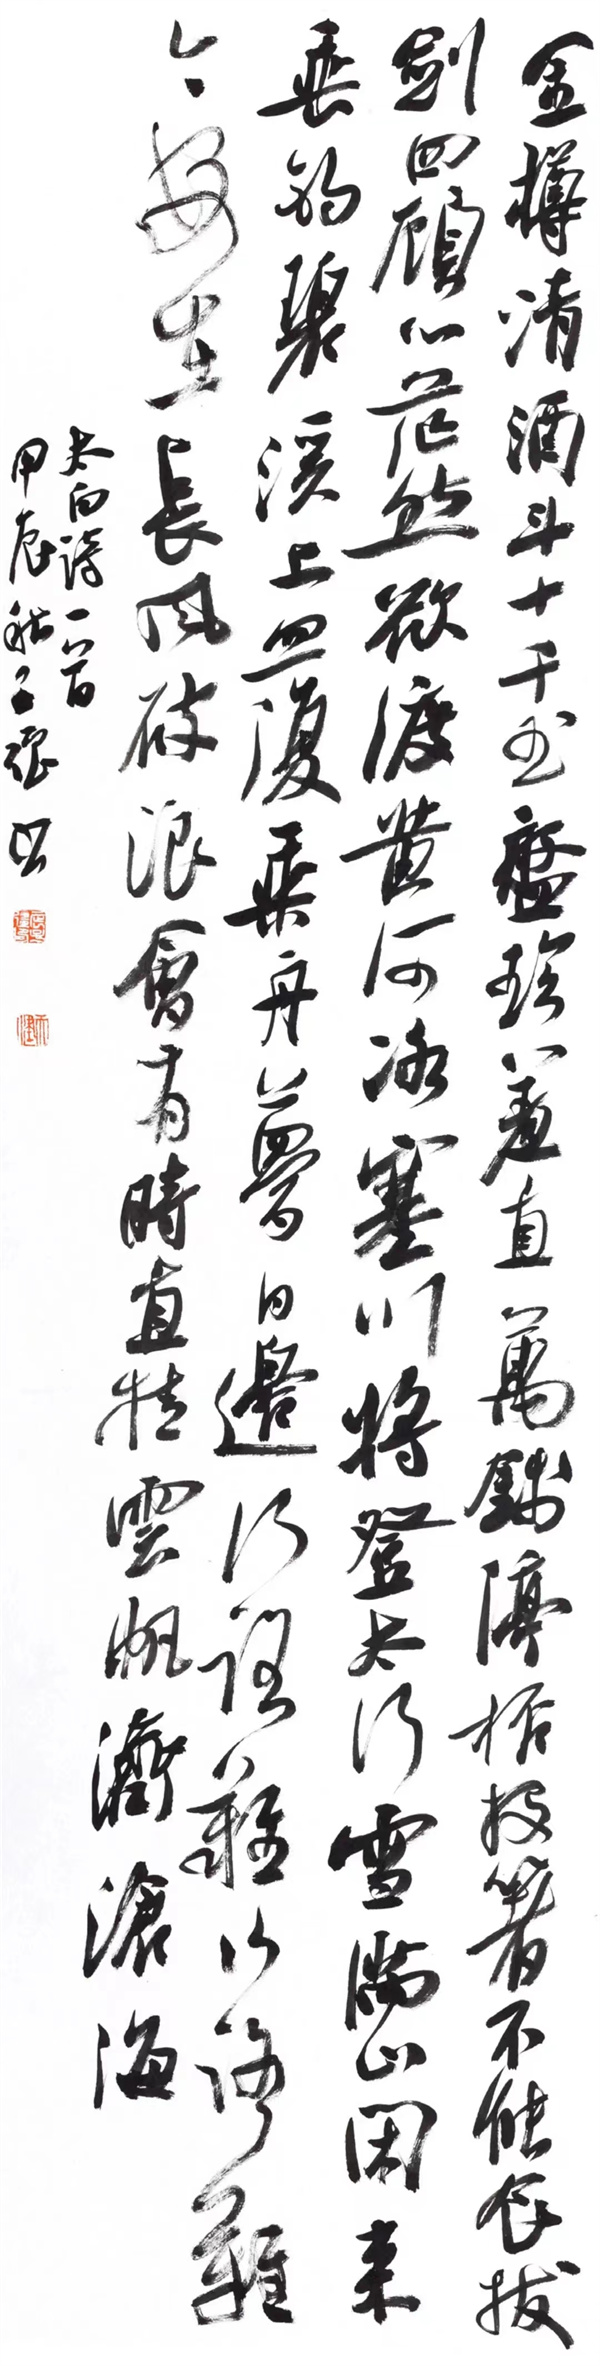 金樽清酒斗十千玉盤珍羞直萬錢停杯投箸不能食拔
劍四顧心茫然欲渡黄河冰塞川將登太行雪滿山閑来
垂釣碧溪上忽復乘舟夢日邊行路難行路難
今安在長風破浪會有時直挂雲帆濟滄海
太白詩一首
甲辰秋书